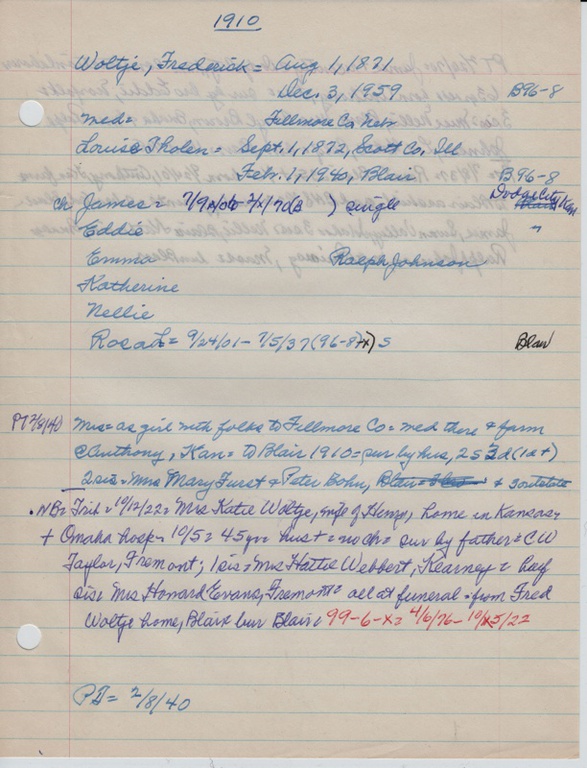 1910
Woltje, Frederick = Aug 1, 1871
Dec. 3, 1959 B96-8
med = Fillmore Co, Neb
Louise Tholen = Sept. 1, 1872, Scott Co, Ill
Feb. 1, 1940, Blair B96-8
ch James = 7/9 ) single Dodge City, Kan
Eddie "
Emma Ralph Johnson
Katherine
Nellie
Rosa L = 9/24/01 - 7/5/37 (96-8-x) s Blair
PT 2/8/40 Mrs = as girl with folks to Fillmore Co = med there & farm
@ Anthony, Kan = to Blair 1910 = sur by hus, 2 s 3 d (1 at)
2 sis = Mrs Mary Furst & Peter Bohn, &
NB = Trib = 10/12/22 = Mrs Katie Woltje, wife of Henry, home in Kansas =
+ Omaha hosp = 10/5 = 45 yr = hus + = no ch = sur by father = CW
Taylor, Fremont; 1 sis = Mrs Hattie Webbert, Kearney = half
sis = Mrs Howard Evans, Fremont = all at funeral = from Fred
Woltje home, Blair = bur Blair = 99-6-x = 4/6/76 - 10/5/22
PT = 2/8/40